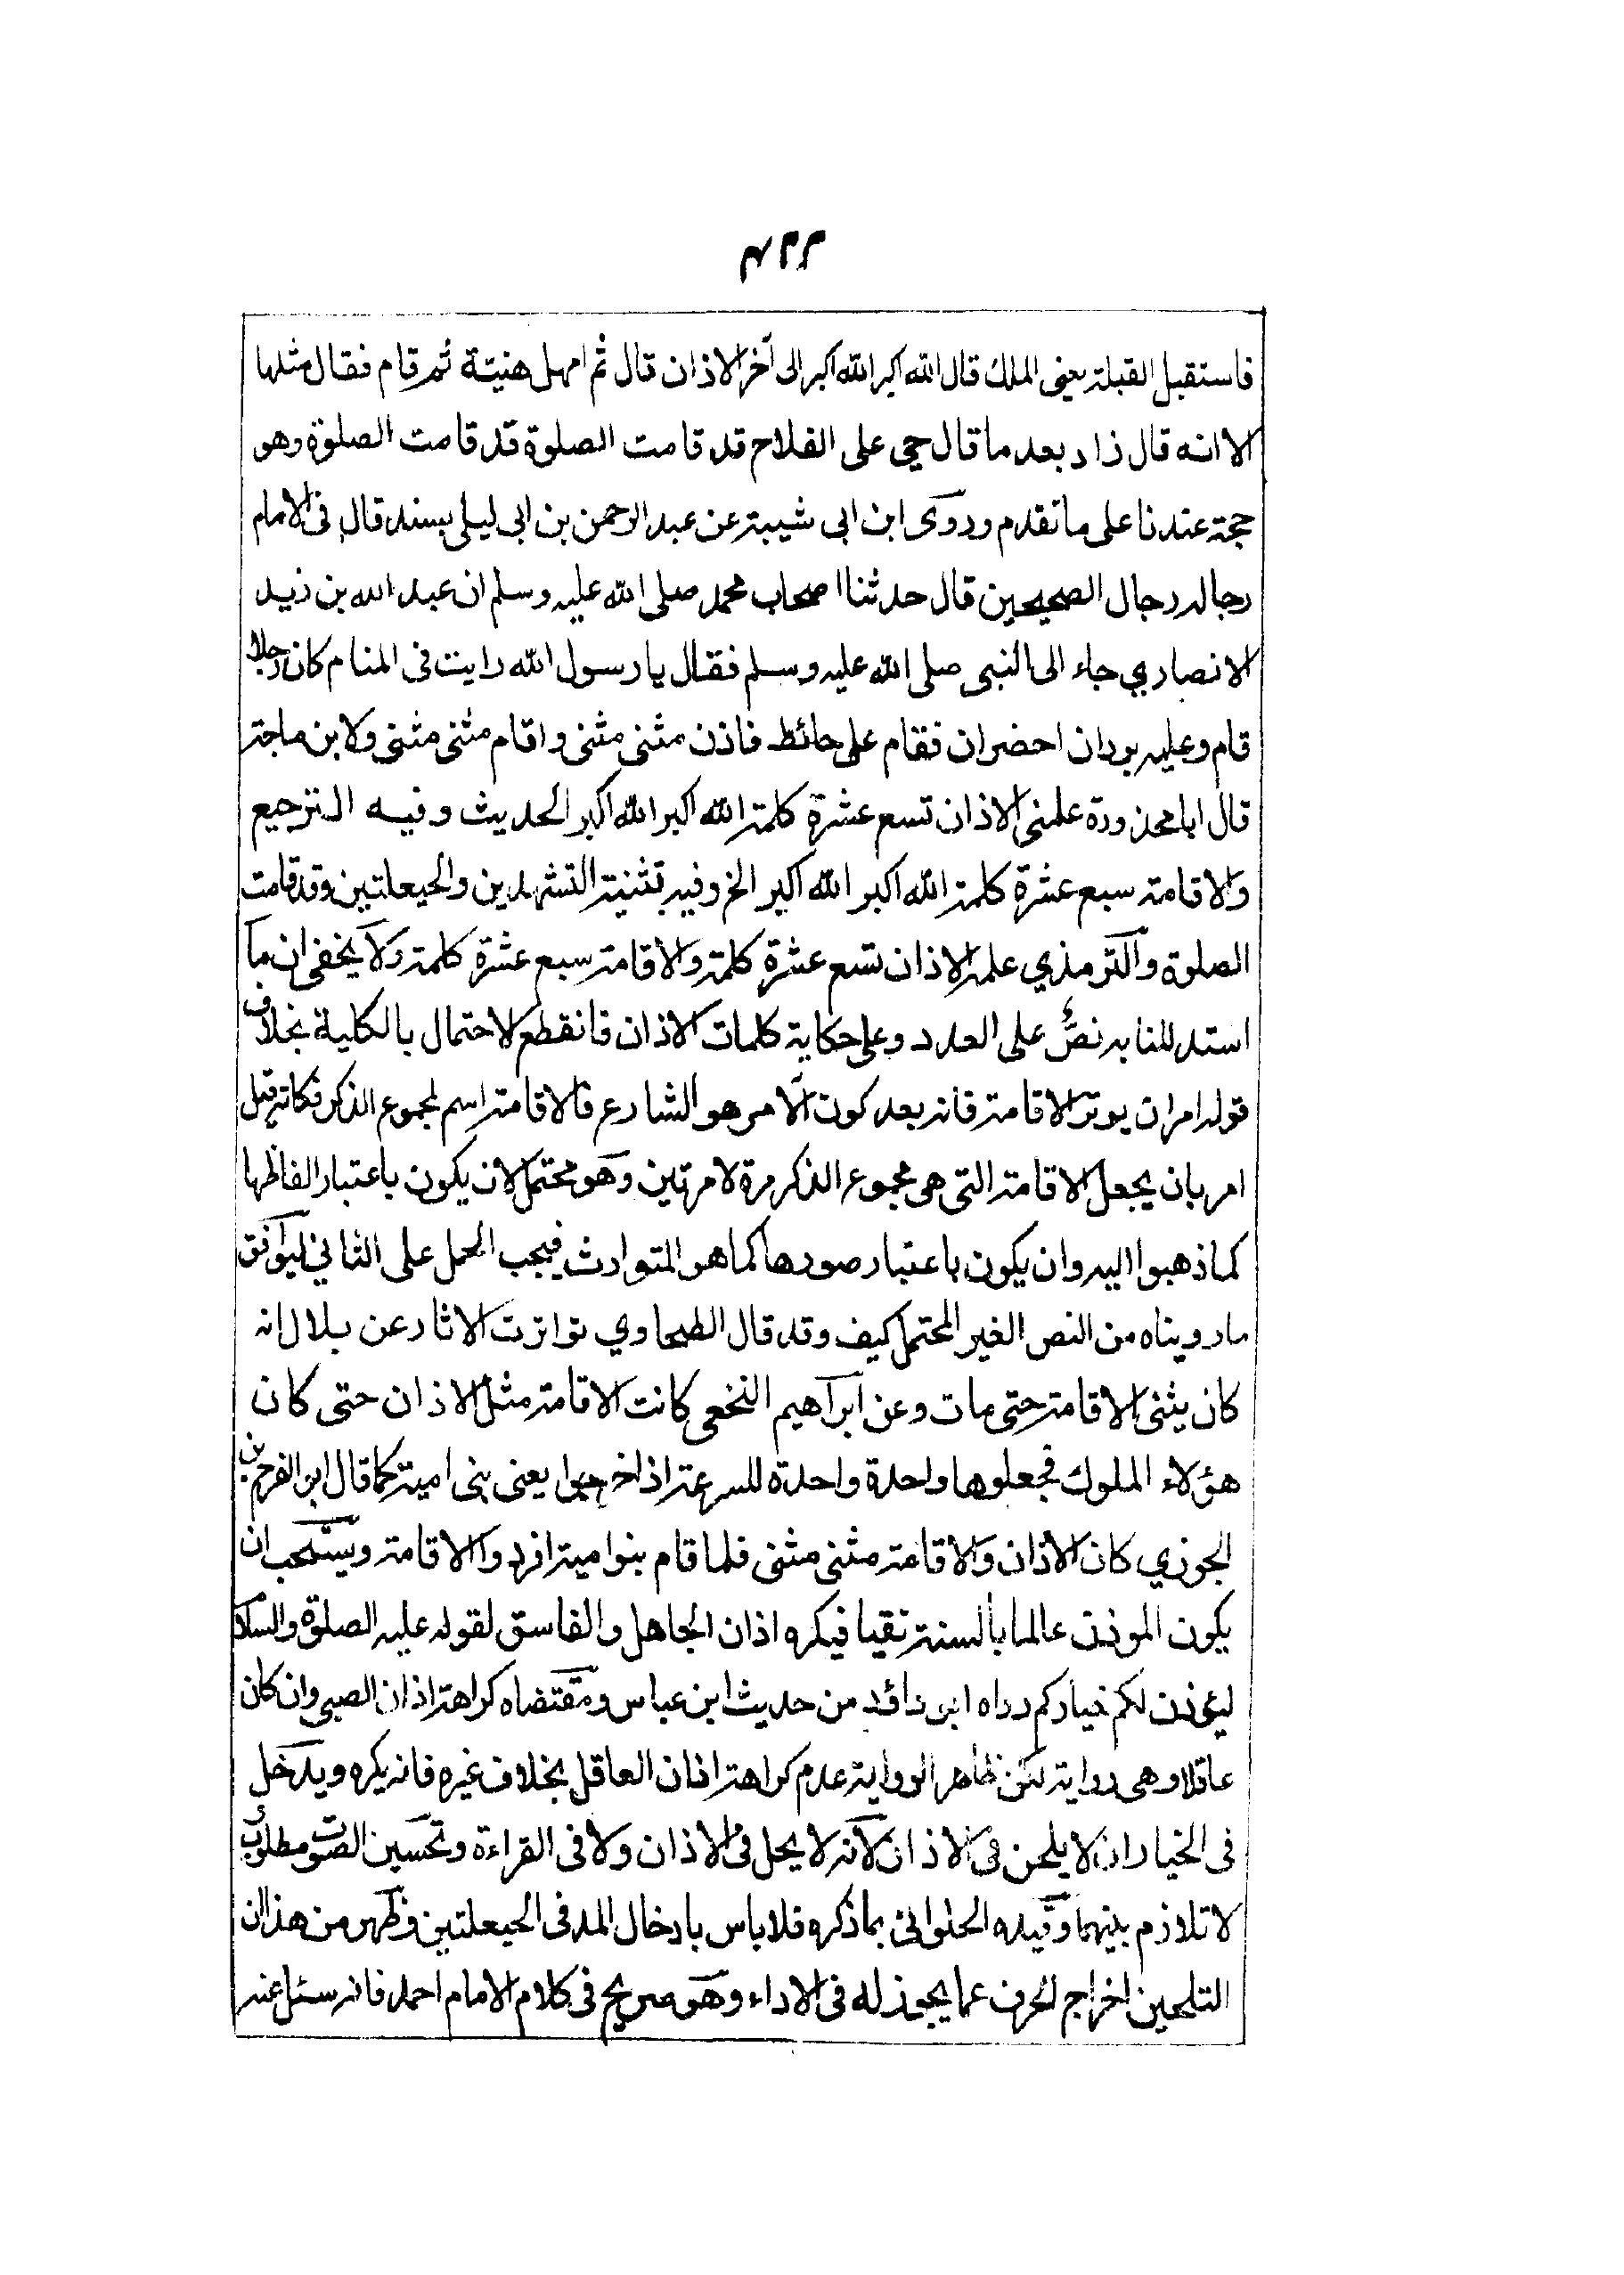 ۴۲۳
فاستقبل القبلة يعنى الملك قال الله اكبر الله اكبر الى آخر الاذان قال ثم امهل هنيئة ثم قام فقال مثلها
الا انه قال زاد بعد ما قال حي على الفلاح قد قامت الصلوة قد قامت الصلوة وهو
حجة عندنا على ما تقدم وروى ابن ابى شيبة عن عبد الرحمن بن ابى ليلى بسند قال فى الامام
رجاله رجال الصحيحين قال حدثنا اصحاب محمد صلى الله عليه وسلم ان عبد الله بن زيد
الانصاري جاء الى النبى صلى الله عليه وسلم فقال يا رسول الله رايت فى المنام كان رجلا
قام وعليه بردان احضران فقام على حائط فاذن مثنى مثنى واقام مثنى مثنى ولابن ماجة
قال ابا محذورة علمنى الاذان تسع عشرة كلمة الله اكبر الله اكبر الحديث وفيه الترجيع
والاقامة سبع عشرة كلمة الله اكبر الله اكبر الخ وفيه تثنية التشهدين والحيعلتين وقد قامت
الصلوة والترمذي علمه الاذان تسع عشرة كلمة والاقامة سبع عشرة كلمة ولا يخفى ان ما
استدللنا به نص على العدد وعلى حكاية كلمات الاذان فانقطع الاحتمال بالكلية بخلاف
قوله امر ان يوتر الاقامة فانه بعد كون الآمر هو الشارع فالاقامة اسم لمجموع الذكر فكانه قيل
امر بان يجعل الاقامة التى هى مجموع الذكر مرة لا مرتين وهو محتمل لان يكون باعتبار الفاظها
كما ذهبوا اليه وان يكون باعتبار صورها كما هو المتوارث فيجب الحمل على الثاني ليوافق
ما رويناه من النص الغير المحتمل كيف وقد قال الطحاوي تواترت الاثار عن بلال انه
كان يثنى الاقامة حتى مات وعن ابراهيم النخعى كانت الاقامة مثل الاذان حتى كان
هؤلاء الملوك فجعلوها واحدة واحدة للسرعة اذا خرجوا يعنى بنى امية كما قال ابو الفرج بن
الجوزي كان الاذان والاقامة مثنى مثنى فلما قام بنوا مية افردوا الاقامة ويستحب ان
يكون الموذن عالما بالسنة تقيا فيكره اذان الجاهل والفاسق لقوله عليه الصلوة والسلام
ليؤذن لكم خياركم رواه ابى دائد من حديث ابن عباس ومقتضاه كراهة اذان الصبى وان كان
عاقلا وهى رواية لكن ظاهر الرواية عدم كراهة اذان العاقل بخلاف غيره فانه يكره ويدخل
فى الخيار ان لا يلحن فى الاذان لانه لا يحل فى الاذان ولا فى القراءة وتحسين الصوت مطلوب و
لا تلازم بينهما وقيده الحلوائى بما ذكره فلا باس بادخال المد فى الحيعلتين وظهر من هذا ان
التلحين اخراج الحرف عما يجوز له فى الاداء وهو صريح فى كلام الامام احمد فانه سئل عنه